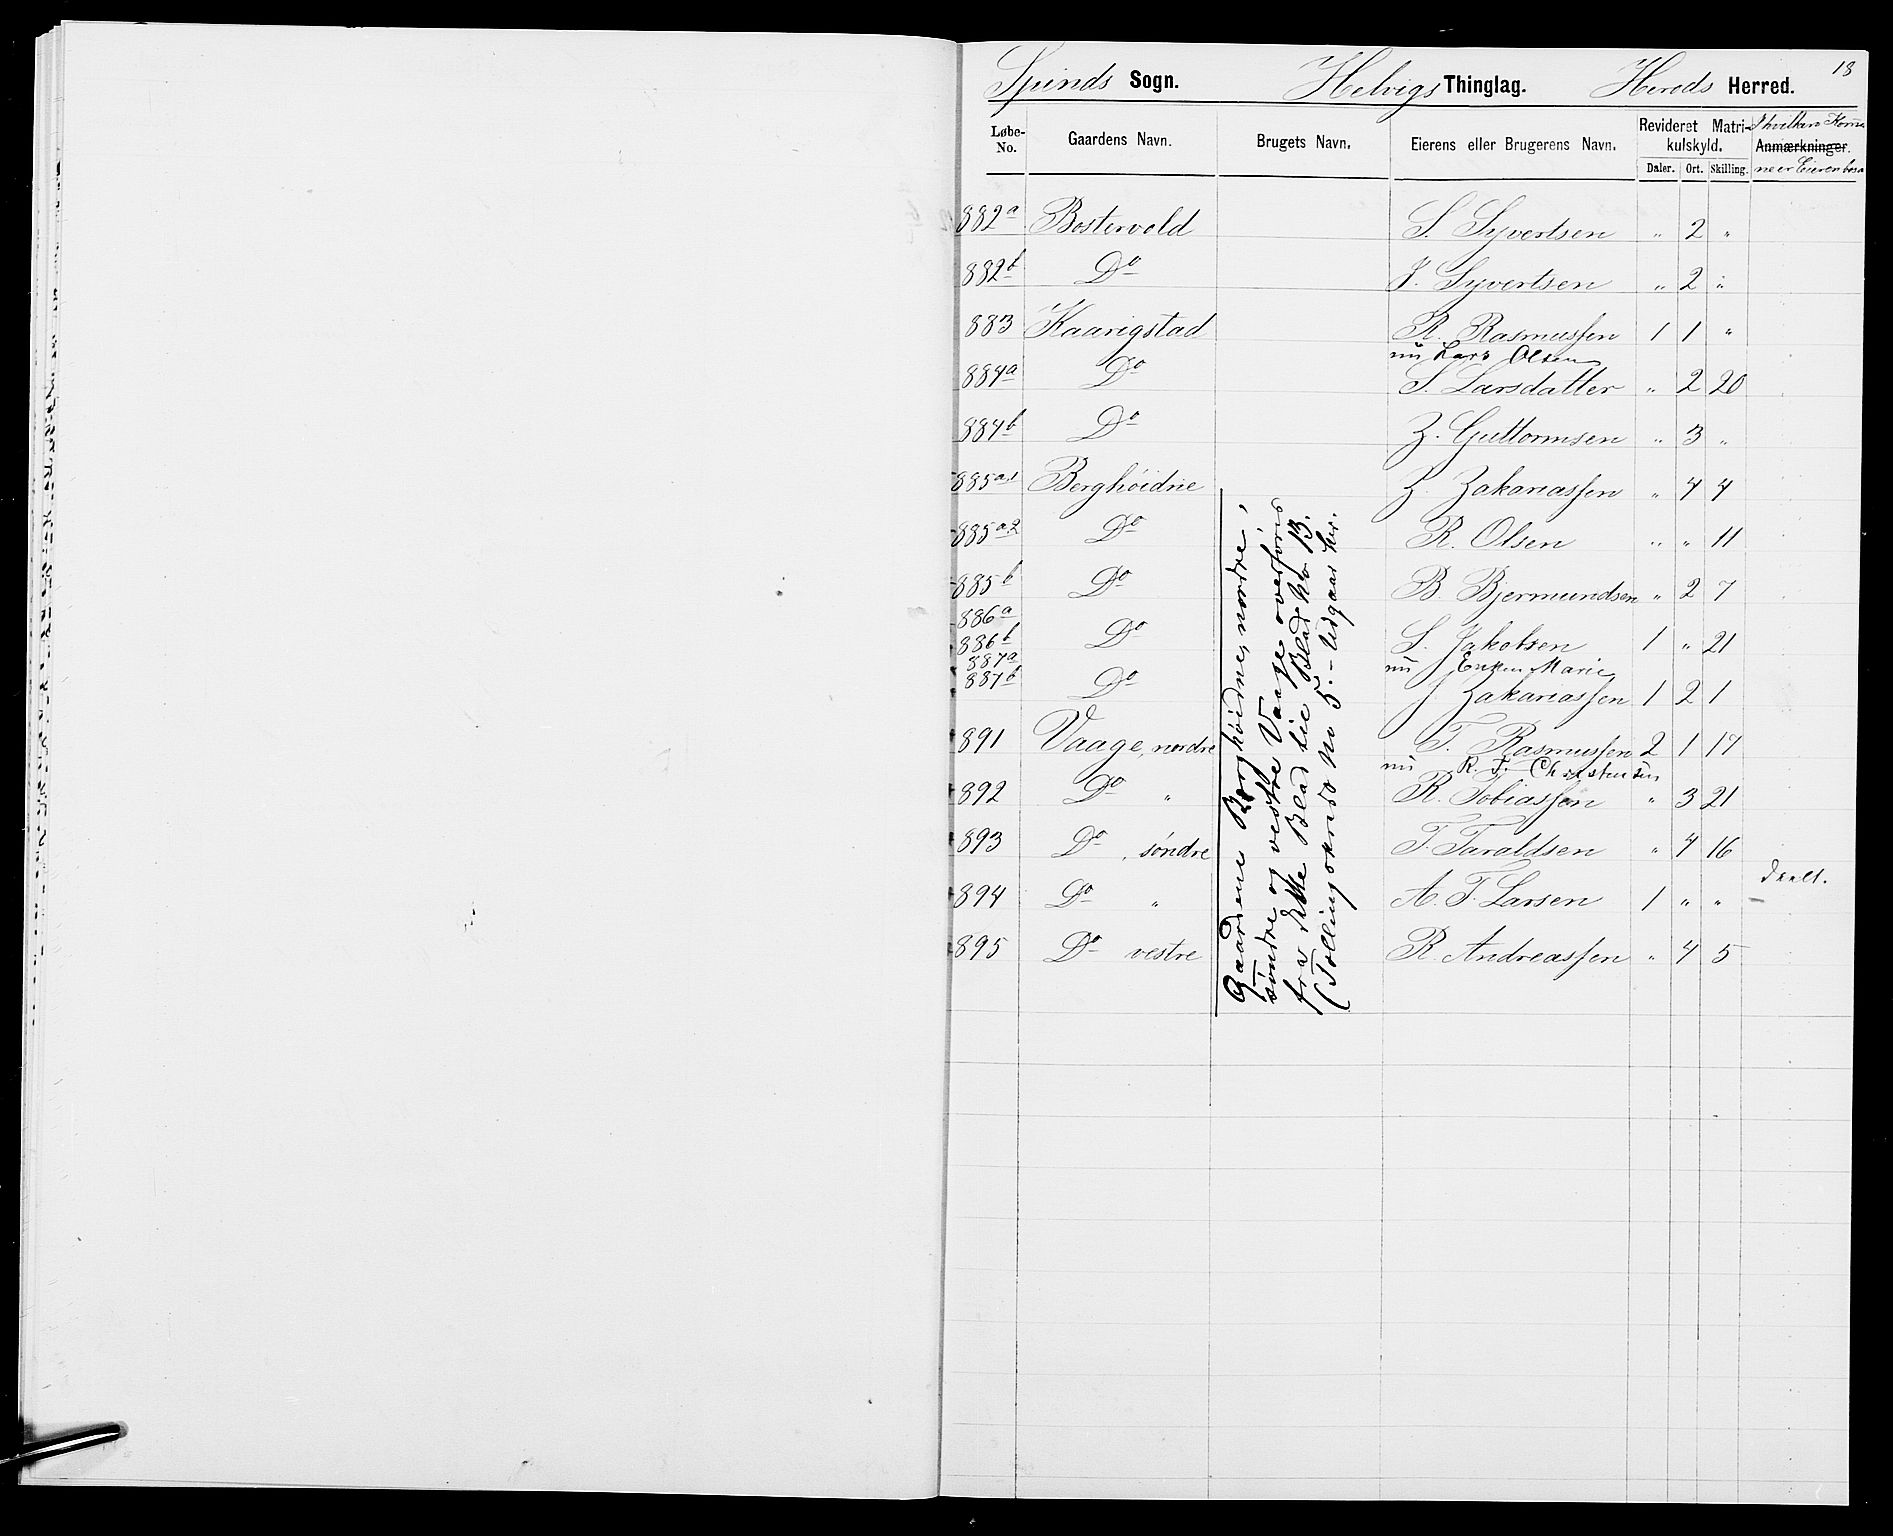 18
Spinds Sogn. Helvigs Thinglag. Hereds Herred.
Løbe-No. Gaardens Navn. Brugets Navn. Eierens eller Brugerens Navn. Revideret Matrikulskyld. Daler. Ort. Skilling. Anmærkninger. I hvilken Komne er Eieren bosa
882a Bostervold S. Syvertsen " 2 "
882b Do J. Syvertsen " 2 "
883 Kaarigstad R. Rasmussen 1 1 "
nu Lars Olsen
884a Do S. Larsdatter " 2 20
884b Do Z. Guttormsen " 3 "
885a.1 Berghöidne Z. Zakariassen " 4 4
885a.2 Do R. Olsen " " 11
885b Do B Bjermundsen " 2 7
886a
886b Do S. Jakobsen 1 " 21
887a nu Enken Marie
887b Do J Zakariassen 1 2 1
891 Vaage, nordre T. Rasmussen 2 1 17
nu R. T. Christensen
892 Do " R. Tobiassen " 3 21
893 Do , söndre T. Taraldsen " 4 16
894 Do " A. T. Larsen 1 " " deelt.
895 Do vestre R. Andreassen " 4 5
Gaardene Berghöidne, nordre,
söndre og vestre Vaage overföres
fra dette Blad til Blad No 13.
(Tellingskreds No 5. - Udgaar her.